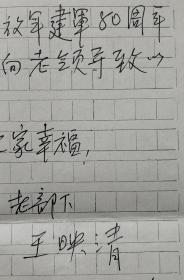 放军建軍80周年
向老领导致以
家幸福，
老部下
王映清